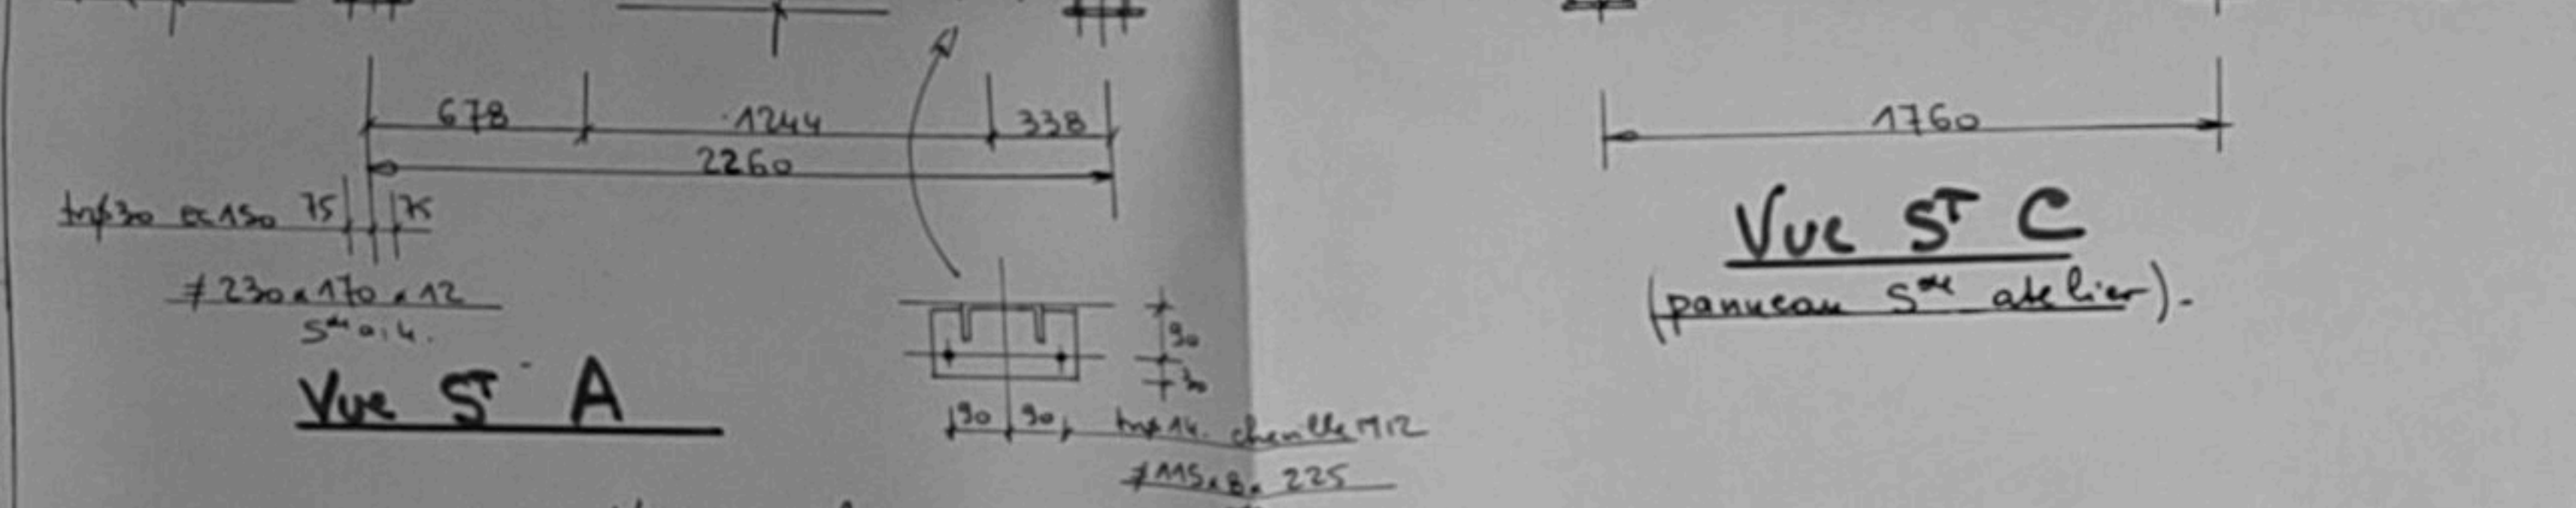 678 1244 338
2260
1760
trφ30 Ec 150 75 75
≠ 230 x 170 x 12
Vue ST A
90
30
90 90 trφ14. cheville M12
≠ 115 x 8 x 225
Vue ST C
(panneau Sde atelier).